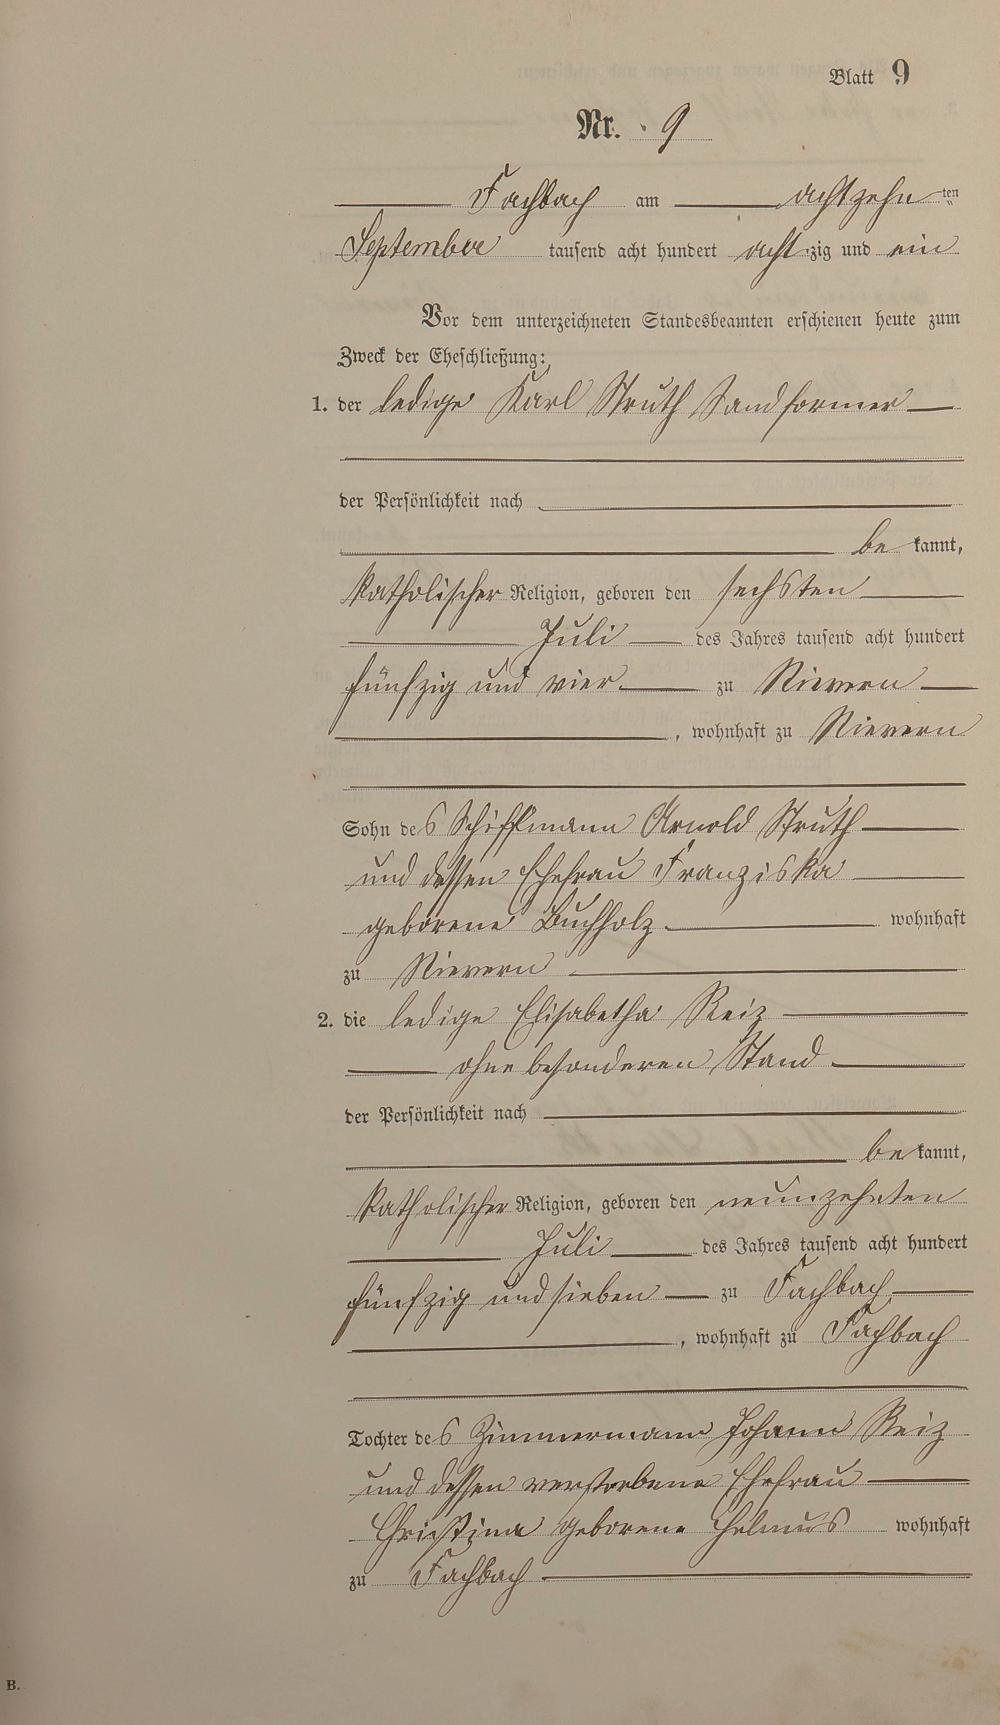 Blatt 9
Nr. 9
Fachbach am achtzehn ten
September tausend acht hundert acht zig und ein
Vor dem unterzeichneten Standesbeamten erschienen heute zum
Zweck der Eheschließung:
1. der ledige Karl Struth Sandformer
der Persönlichkeit nach
be kannt,
katholischer Religion, geboren den sechsten
Juli des Jahres tausend acht hundert
fünfzig und vier zu Nievern
, wohnhaft zu Nievern
Sohn des Schiffmann Arnold Struth
und dessen Ehefrau Franziska
geborene Buchholz wohnhaft
zu Nievern
2. die ledige Elisabetha Reiz
ohne besonderen Stand
der Persönlichkeit nach
be kannt,
katholischer Religion, geboren den neunzehnten
Juli des Jahres tausend acht hundert
fünfzig und sieben zu Fachbach
, wohnhaft zu Fachbach
Tochter des Zimmermann Johann Reiz
und dessen verstorbene Ehefrau
Christina geborene wohnhaft
zu Fachbach
B.